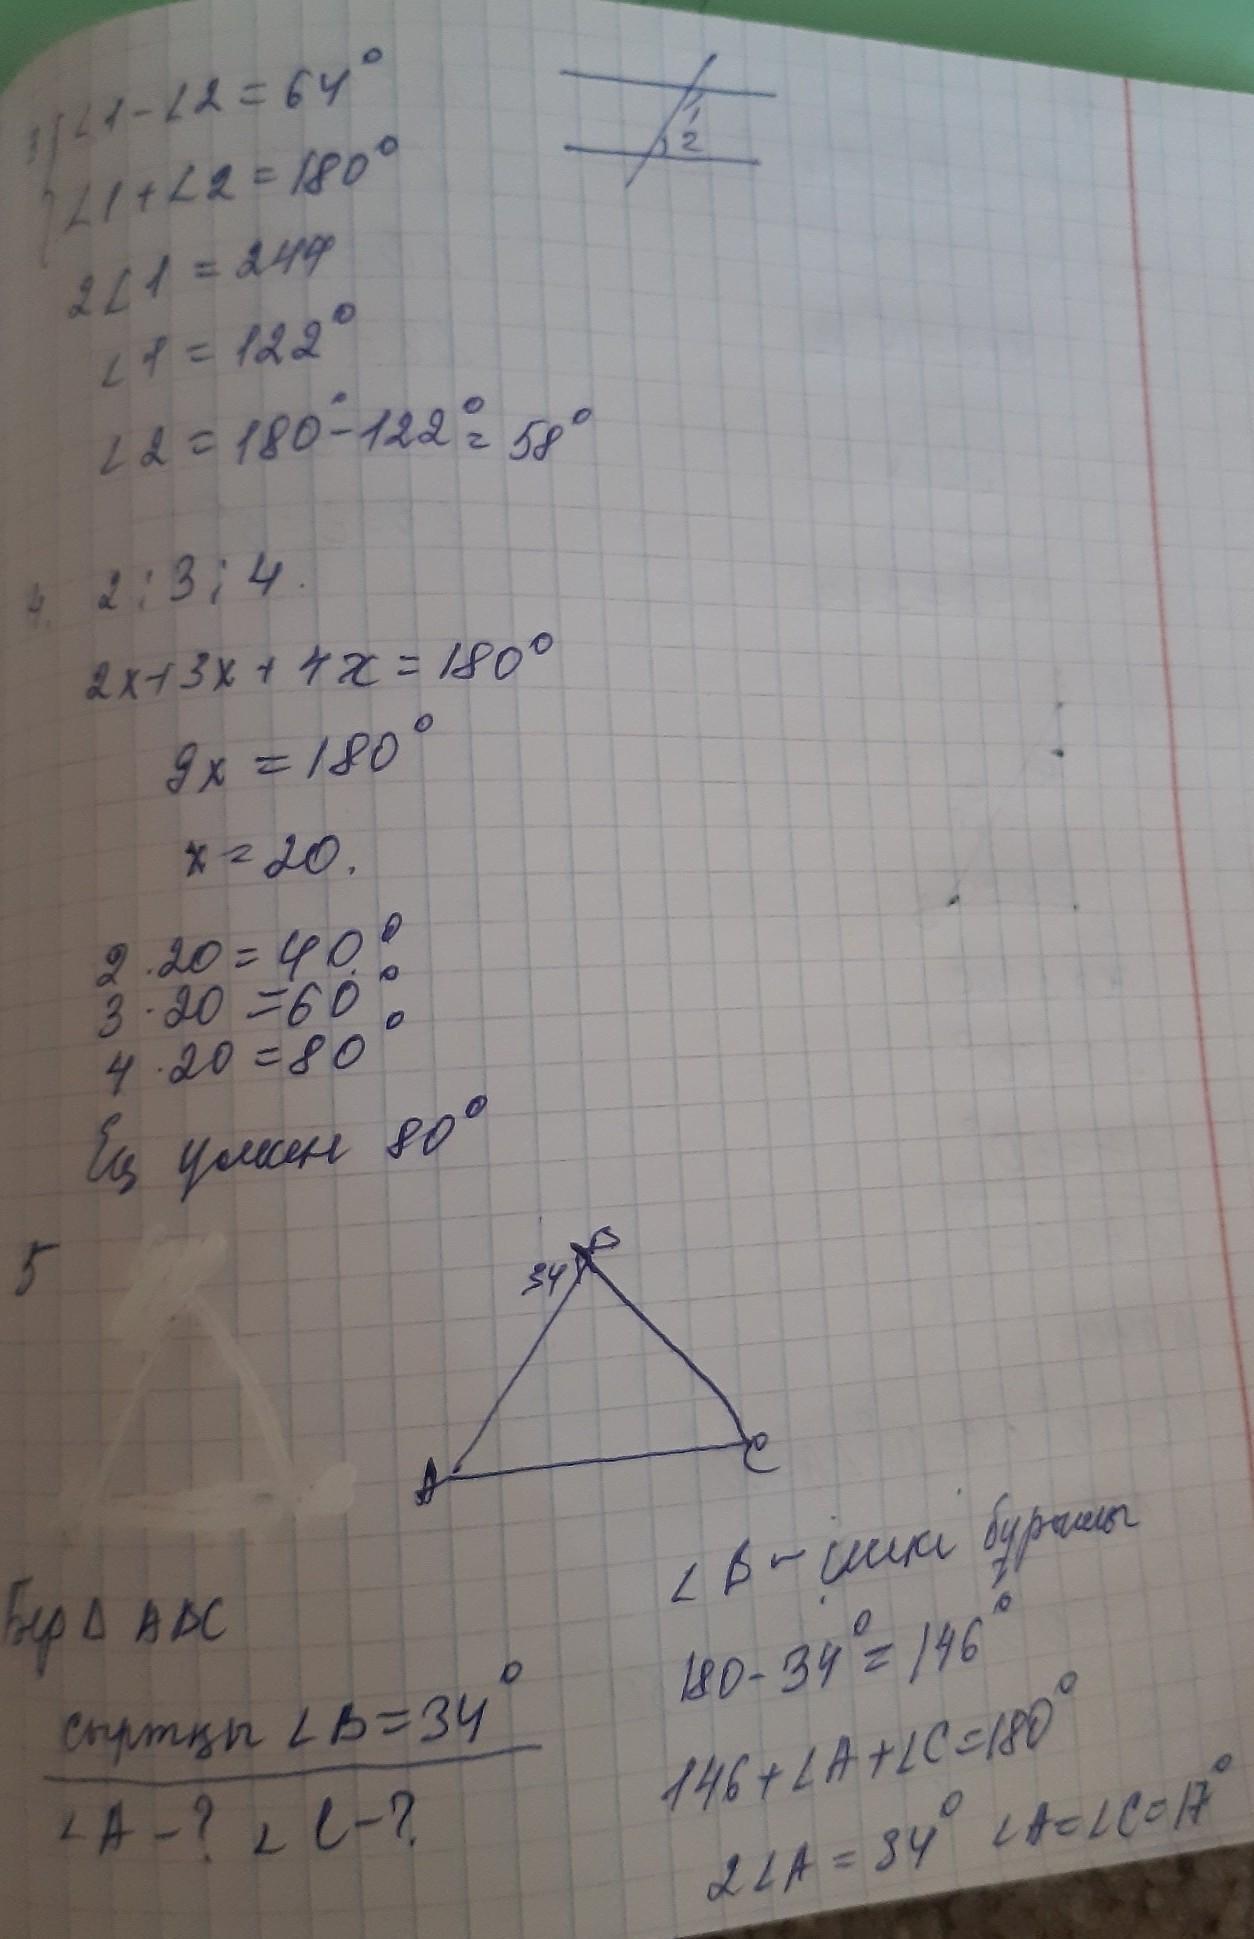 3) ∠1-∠2=64°
1
2
∠1+∠2=180°
2∠1=244
∠1=122°
∠2=180°-122°=58°
4. 2:3:4.
2x+3x+4x=180°
9x=180°
x=20.
2·20=40°
3·20=60°
4·20=80°
Ең үлкен 80°
5
B
34
A
C
Бер Δ ABC
сыртқы ∠B=34°
∠A-? ∠C-?
∠B-ішкі бұрышы
180-34°=146°
146+∠A+∠C=180°
2∠A=34° ∠A=∠C=17°